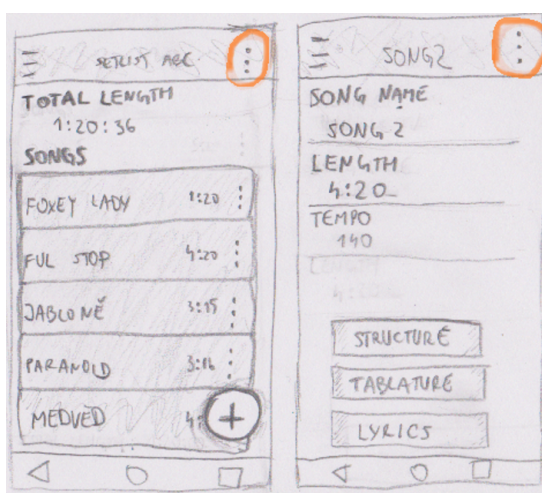 SETLIST ABC
TOTAL LENGTH
1:20:36
SONGS
FOXEY LADY 1:20
FUL STOP 4:20
JABLONĚ 3:15
PARANOID 3:16
MEDVĚD 4:
+
SONG2
SONG NAME
SONG 2
LENGTH
4:20
TEMPO
140
STRUCTURE
TABLATURE
LYRICS